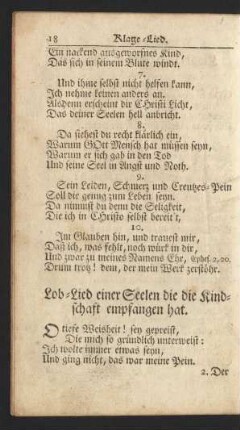 18 Klage-Lied.
Ein nackend ausgeworfnes Kind,
Das sich in seinem Blute windt.
7.
Und ihme selbst nicht helfen kann,
Ich nehme keinen anders an.
Alsdenn erscheint dir Christi Licht,
Das deiner Seelen hell anbricht.
8.
Da siehest du recht klärlich ein,
Warum GOtt Mensch hat müssen seyn,
Warum er sich gab in den Tod
Und seine Seel in Angst und Noth.
9.
Sein Leiden, Schmerz und Creutzes-Pein
Soll dir genug zum Leben seyn.
Da nimmst du denn die Seligkeit,
Die ich in CHristo selbst bereit't,
10.
Im Glauben hin, und trauest mir,
Daß ich, was fehlt, noch würk in dir,
Und zwar zu meines Namens Ehr, Ephes. 2, 20.
Drum troz! dem, der mein Werk zerstöhr.
Lob-Lied einer Seelen die die Kind-
schaft empfangen hat.
O tiefe Weisheit! sey gepreist,
Die mich so gründlich unterweist:
Ich wolte immer etwas seyn,
Und ging nicht, das war meine Pein.
2. Der